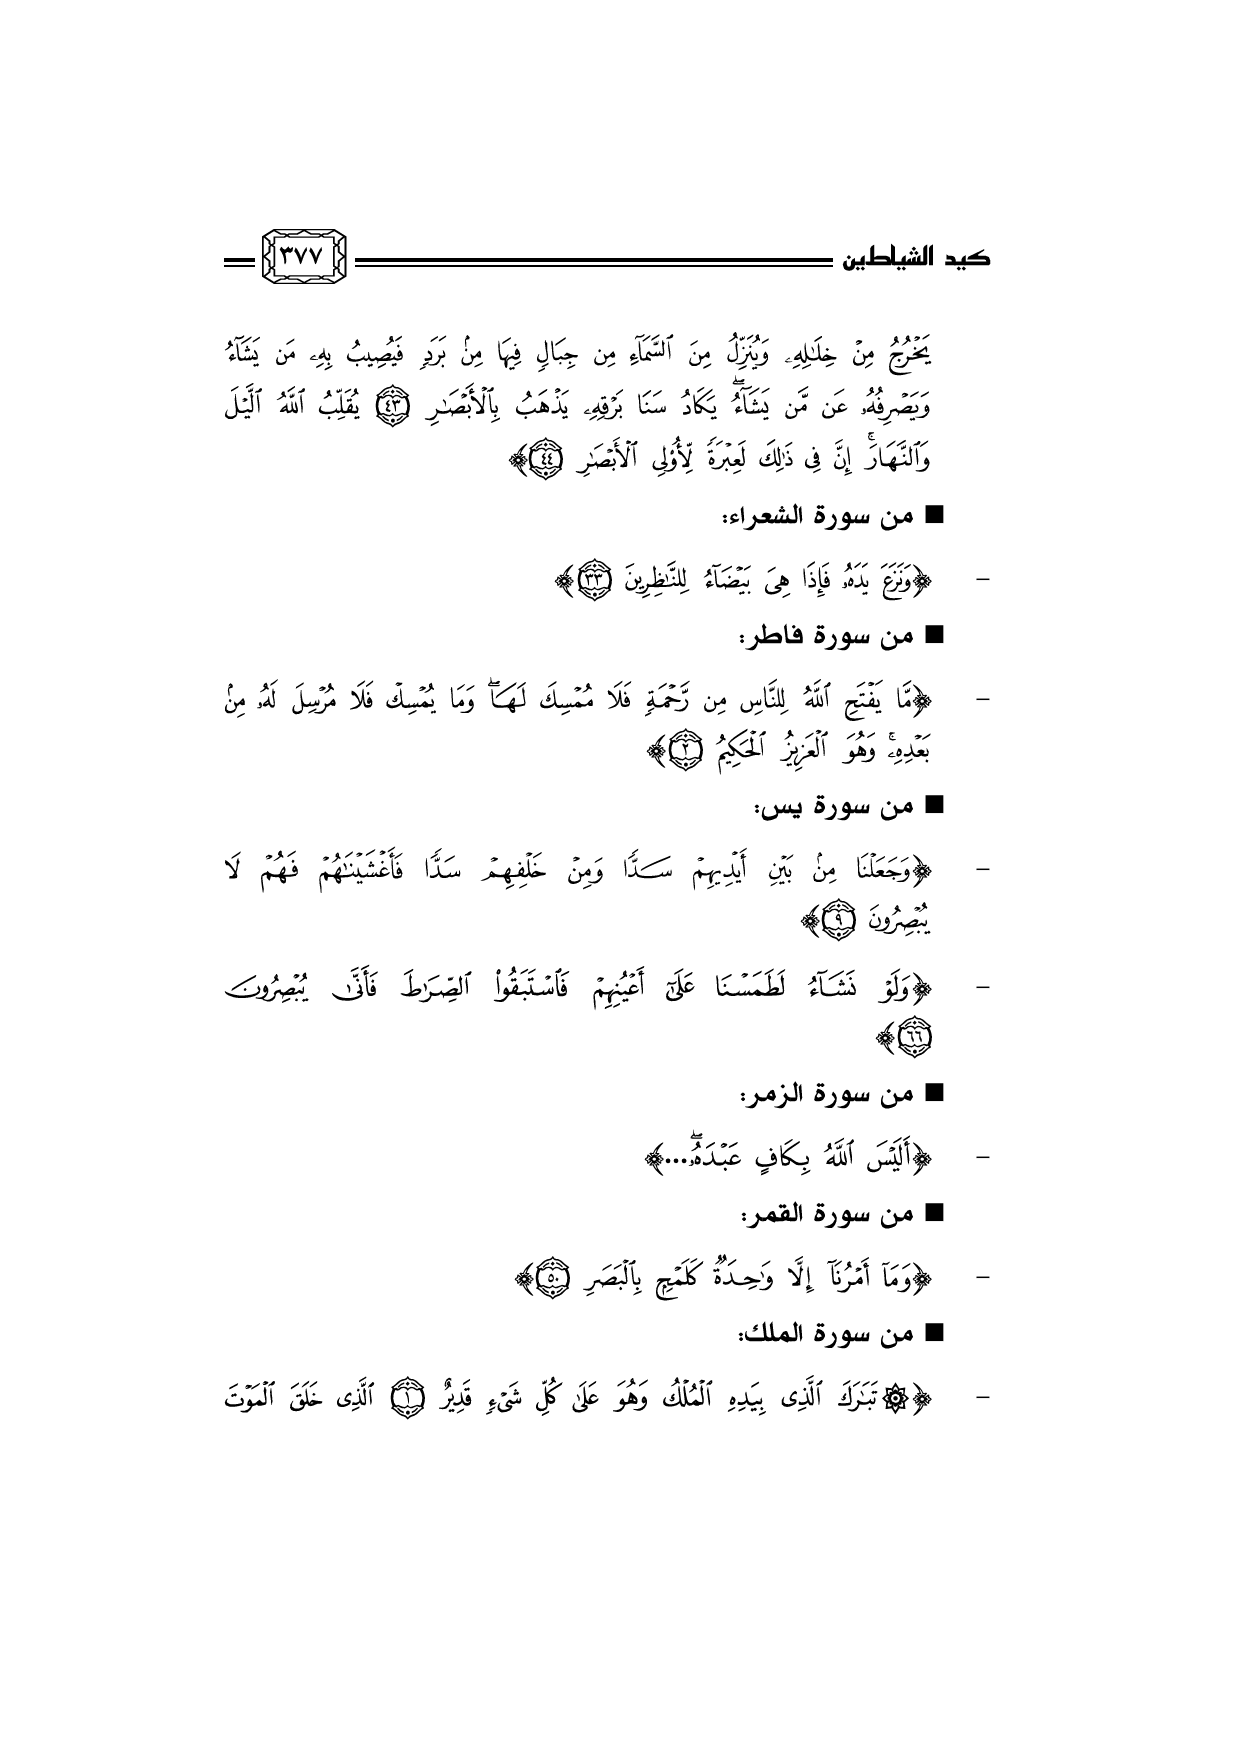 كيد الشياطين ٣٧٧
يَخْرُجُ مِنْ خِلَٰلِهِۦ وَيُنَزِّلُ مِنَ ٱلسَّمَآءِ مِن جِبَالٍ فِيهَا مِنۢ بَرَدٍ فَيُصِيبُ بِهِۦ مَن يَشَآءُ
وَيَصْرِفُهُۥ عَن مَّن يَشَآءُۖ يَكَادُ سَنَا بَرْقِهِۦ يَذْهَبُ بِٱلْأَبْصَٰرِ ٤٣ يُقَلِّبُ ٱللَّهُ ٱلَّيْلَ
وَٱلنَّهَارَۚ إِنَّ فِى ذَٰلِكَ لَعِبْرَةً لِّأُو۟لِى ٱلْأَبْصَٰرِ ٤٤﴾
■ من سورة الشعراء:
- ﴿وَنَزَعَ يَدَهُۥ فَإِذَا هِىَ بَيْضَآءُ لِلنَّٰظِرِينَ ٣٣﴾
■ من سورة فاطر:
- ﴿مَّا يَفْتَحِ ٱللَّهُ لِلنَّاسِ مِن رَّحْمَةٍ فَلَا مُمْسِكَ لَهَاۖ وَمَا يُمْسِكْ فَلَا مُرْسِلَ لَهُۥ مِنۢ
بَعْدِهِۦۚ وَهُوَ ٱلْعَزِيزُ ٱلْحَكِيمُ ٢﴾
■ من سورة يس:
- ﴿وَجَعَلْنَا مِنۢ بَيْنِ أَيْدِيهِمْ سَدًّا وَمِنْ خَلْفِهِمْ سَدًّا فَأَغْشَيْنَٰهُمْ فَهُمْ لَا
يُبْصِرُونَ ٩﴾
- ﴿وَلَوْ نَشَآءُ لَطَمَسْنَا عَلَىٰٓ أَعْيُنِهِمْ فَٱسْتَبَقُوا۟ ٱلصِّرَٰطَ فَأَنَّىٰ يُبْصِرُونَ
٦٦﴾
■ من سورة الزمر:
- ﴿أَلَيْسَ ٱللَّهُ بِكَافٍ عَبْدَهُۥۖ...﴾
■ من سورة القمر:
- ﴿وَمَآ أَمْرُنَآ إِلَّا وَٰحِدَةٌ كَلَمْحٍۭ بِٱلْبَصَرِ ٥٠﴾
■ من سورة الملك:
- ﴿۞تَبَٰرَكَ ٱلَّذِى بِيَدِهِ ٱلْمُلْكُ وَهُوَ عَلَىٰ كُلِّ شَىْءٍ قَدِيرٌ ١ ٱلَّذِى خَلَقَ ٱلْمَوْتَ